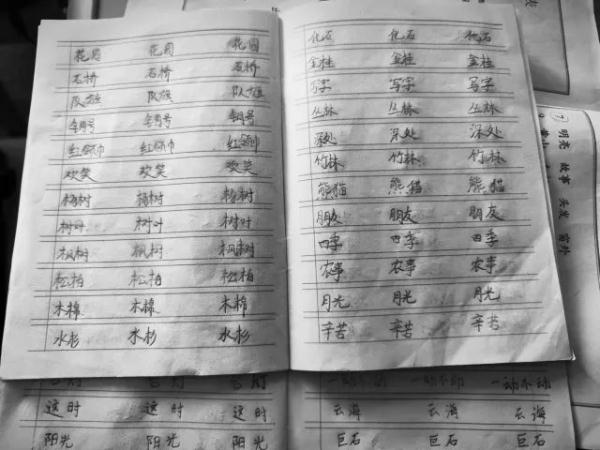 花园 花园 花园
石桥 石桥 石桥
队旗 队旗 队旗
铜号 铜号 铜号
红领巾 红领巾 红领巾
欢笑 欢笑 欢笑
杨树 杨树 杨树
树叶 树叶 树叶
枫树 枫树 枫树
松柏 松柏 松柏
木棉 木棉 木棉
水杉 水杉 水杉
化石 化石 化石
金桂 金桂 金桂
写字 写字 写字
丛林 丛林 丛林
深处 深处 深处
竹林 竹林 竹林
熊猫 熊猫 熊猫
朋友 朋友 朋友
四季 四季 四季
农事 农事 农事
月光 月光 月光
辛苦 辛苦 辛苦
这时 这时 这时
阳光 阳光 阳光
一动不动 一动不动 一动不动
云海 云海 云海
巨石 巨石 巨石
7 明亮 故事 头发 窗外